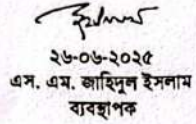 ২৬-০৬-২০২৫
এস. এম. জাহিদুল ইসলাম
ব্যবস্থাপক